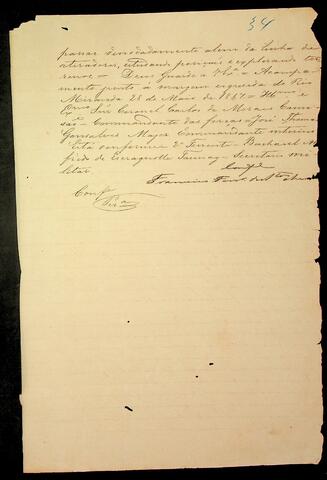 34
passar denodadamente alem da linha de
atiradores, estudando posições e explorando ter-
renos — Deus Guarde a V.Sª — Acampa-
mento junto a margem esquerda do Rio
Miranda 28 de Maio de 1867 — Illmo e
Exmo Snr Coronel Carlos de Moraes Cami-
são — Commandante das forças — José Thomaz
Gonsalves Major Commandante interino
Está conforme O Tenente Bacharel Al-
fredo de Escragnolle Taunay — Secretario mi-
litar
Conf.e
Francisco
Conf.e